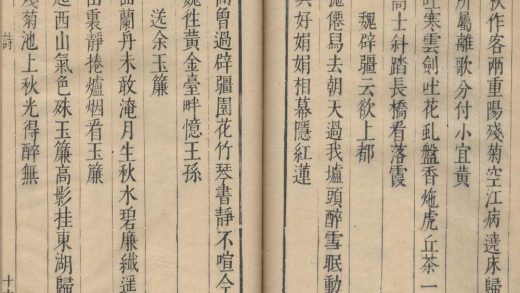 秋作客兩重陽殘菊空江病遶床歸
所屬離歌分付小宜黃
吐寒雲劍吐花虬盤香灺虎丘茶一
高士斜踏長橋看落霞
魏辟疆云欲上都
僊鳧去朝天過我壚頭醉雪眠動
與好娟娟相幕隱紅蓮
曾過辟疆園花竹琴書靜不喧今
往黃金臺畔憶王孫
送余玉簾
蘭丹木敢淹月生秋水碧廉纖遥
裏靜捲爐烟看玉簾
西山氣色殊玉簾高影挂東湖歸
殘菊池上秋光得醉無
詩 十